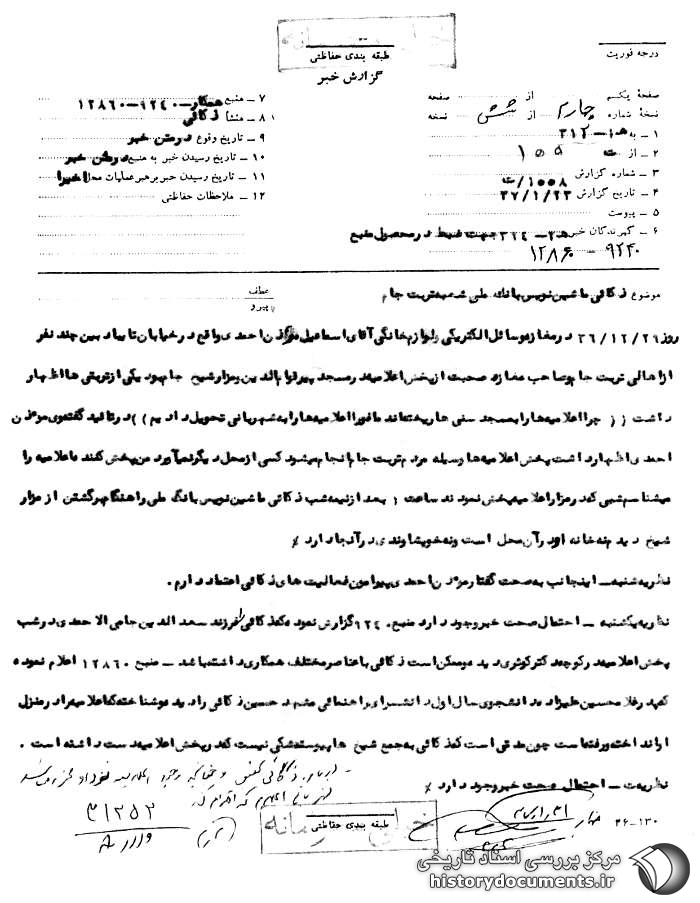 خیلی محرمانه
طبقه بندی حفاظتی
گزارش خبر
درجه فوریت
صفحهٔ یکم از صفحه
نسخهٔ شماره چهارم از شش نسخه
۱ – به ۳۱۲
۲ – از
۳ – شماره گزارش ۱۰۰۸/ت
۴ – تاریخ گزارش ۳۷/۱/۲۳
۵ – پیوست
۶ – گیرندگان خبر ۳۲۴ جهت ضبط در محصول منبع
۹۲۴۰ – ۱۲۸۶۰
۷ – منبع همکار – ۹۲۴۰ – ۱۲۸۶۰
۸ – منشأ ذکائی
۹ – تاریخ وقوع در متن خبر
۱۰ – تاریخ رسیدن خبر به منبع در متن خبر
۱۱ – تاریخ رسیدن خبر به رهبر عملیات محل اخیرا
۱۲ – ملاحظات حفاظتی
موضوع ذکائی ماشین نویس بانک ملی شعبه تربت جام
عطف
پیرو
روز ۳۶/۱۲/۲۶ در مغازه وسائل الکتریکی و لوازم خانگی آقای اسماعیل احمدی واقع در خیابان تایباد بین چند نفر
از اهالی تربت جام و صاحب مغازه صحبت از پخش اعلامیه در مسجد و مزار شیخ جام بود یکی از تربتی ها اظهار
داشت (( چرا اعلامیه ها را به مسجد سنی ها ریخته‌اند ما فورا اعلامیه ها را به شهربانی تحویل دادیم )) در تائید گفته‌وی موذن
احمدی اظهار داشت پخش اعلامیه ها وسیله مردم تربت جام انجام میشود کسی از محل دیگر نمیآورد من پخش کننده اعلامیه را
میشناسم شبی که در مزار اعلامیه پخش نمودند ساعت ۱ بعد از نیمه شب ذکائی ماشین نویس بانک ملی را هنگام برگشتن از مزار
شیخ دیدم نه خانه او در آن محل است و نه خویشاوندی در آنجا دارد ٪
نظریه شنبه – اینجانب به صحت گفتار موذن احمدی پیرامون فعالیت های ذکائی اعتماد دارم .
نظریه یکشنبه – احتمال صحت خبر وجود دارد منبع گزارش نموده که ذکائی فرزند سعد الدین جامی الاحمدی در شب
پخش اعلامیه در کوچه دکتر کوثری دیده و ممکن است ذکائی با عناصر مختلف همکاری داشته باشد – منبع ۱۲۸۶۰ اعلام نموده
که پدر غلامحسین علیزاده دانشجوی سال اول دانشسرای راهنمائی مشهد حسین ذکائی را دیده و شناخته که اعلامیه در منزل
او انداخته و رفته است چون مدتی است که ذکائی به جمع شیخ ها پیوسته شکی نیست که در پخش اعلامیه دست داشته است .
نظریه – احتمال صحت خبر وجود دارد ٪
۴۱۲۵۲
۴۶–۱۳۰
طبقه بندی حفاظتی
خیلی محرمانه
مرکز بررسی اسناد تاریخی
historydocuments.ir